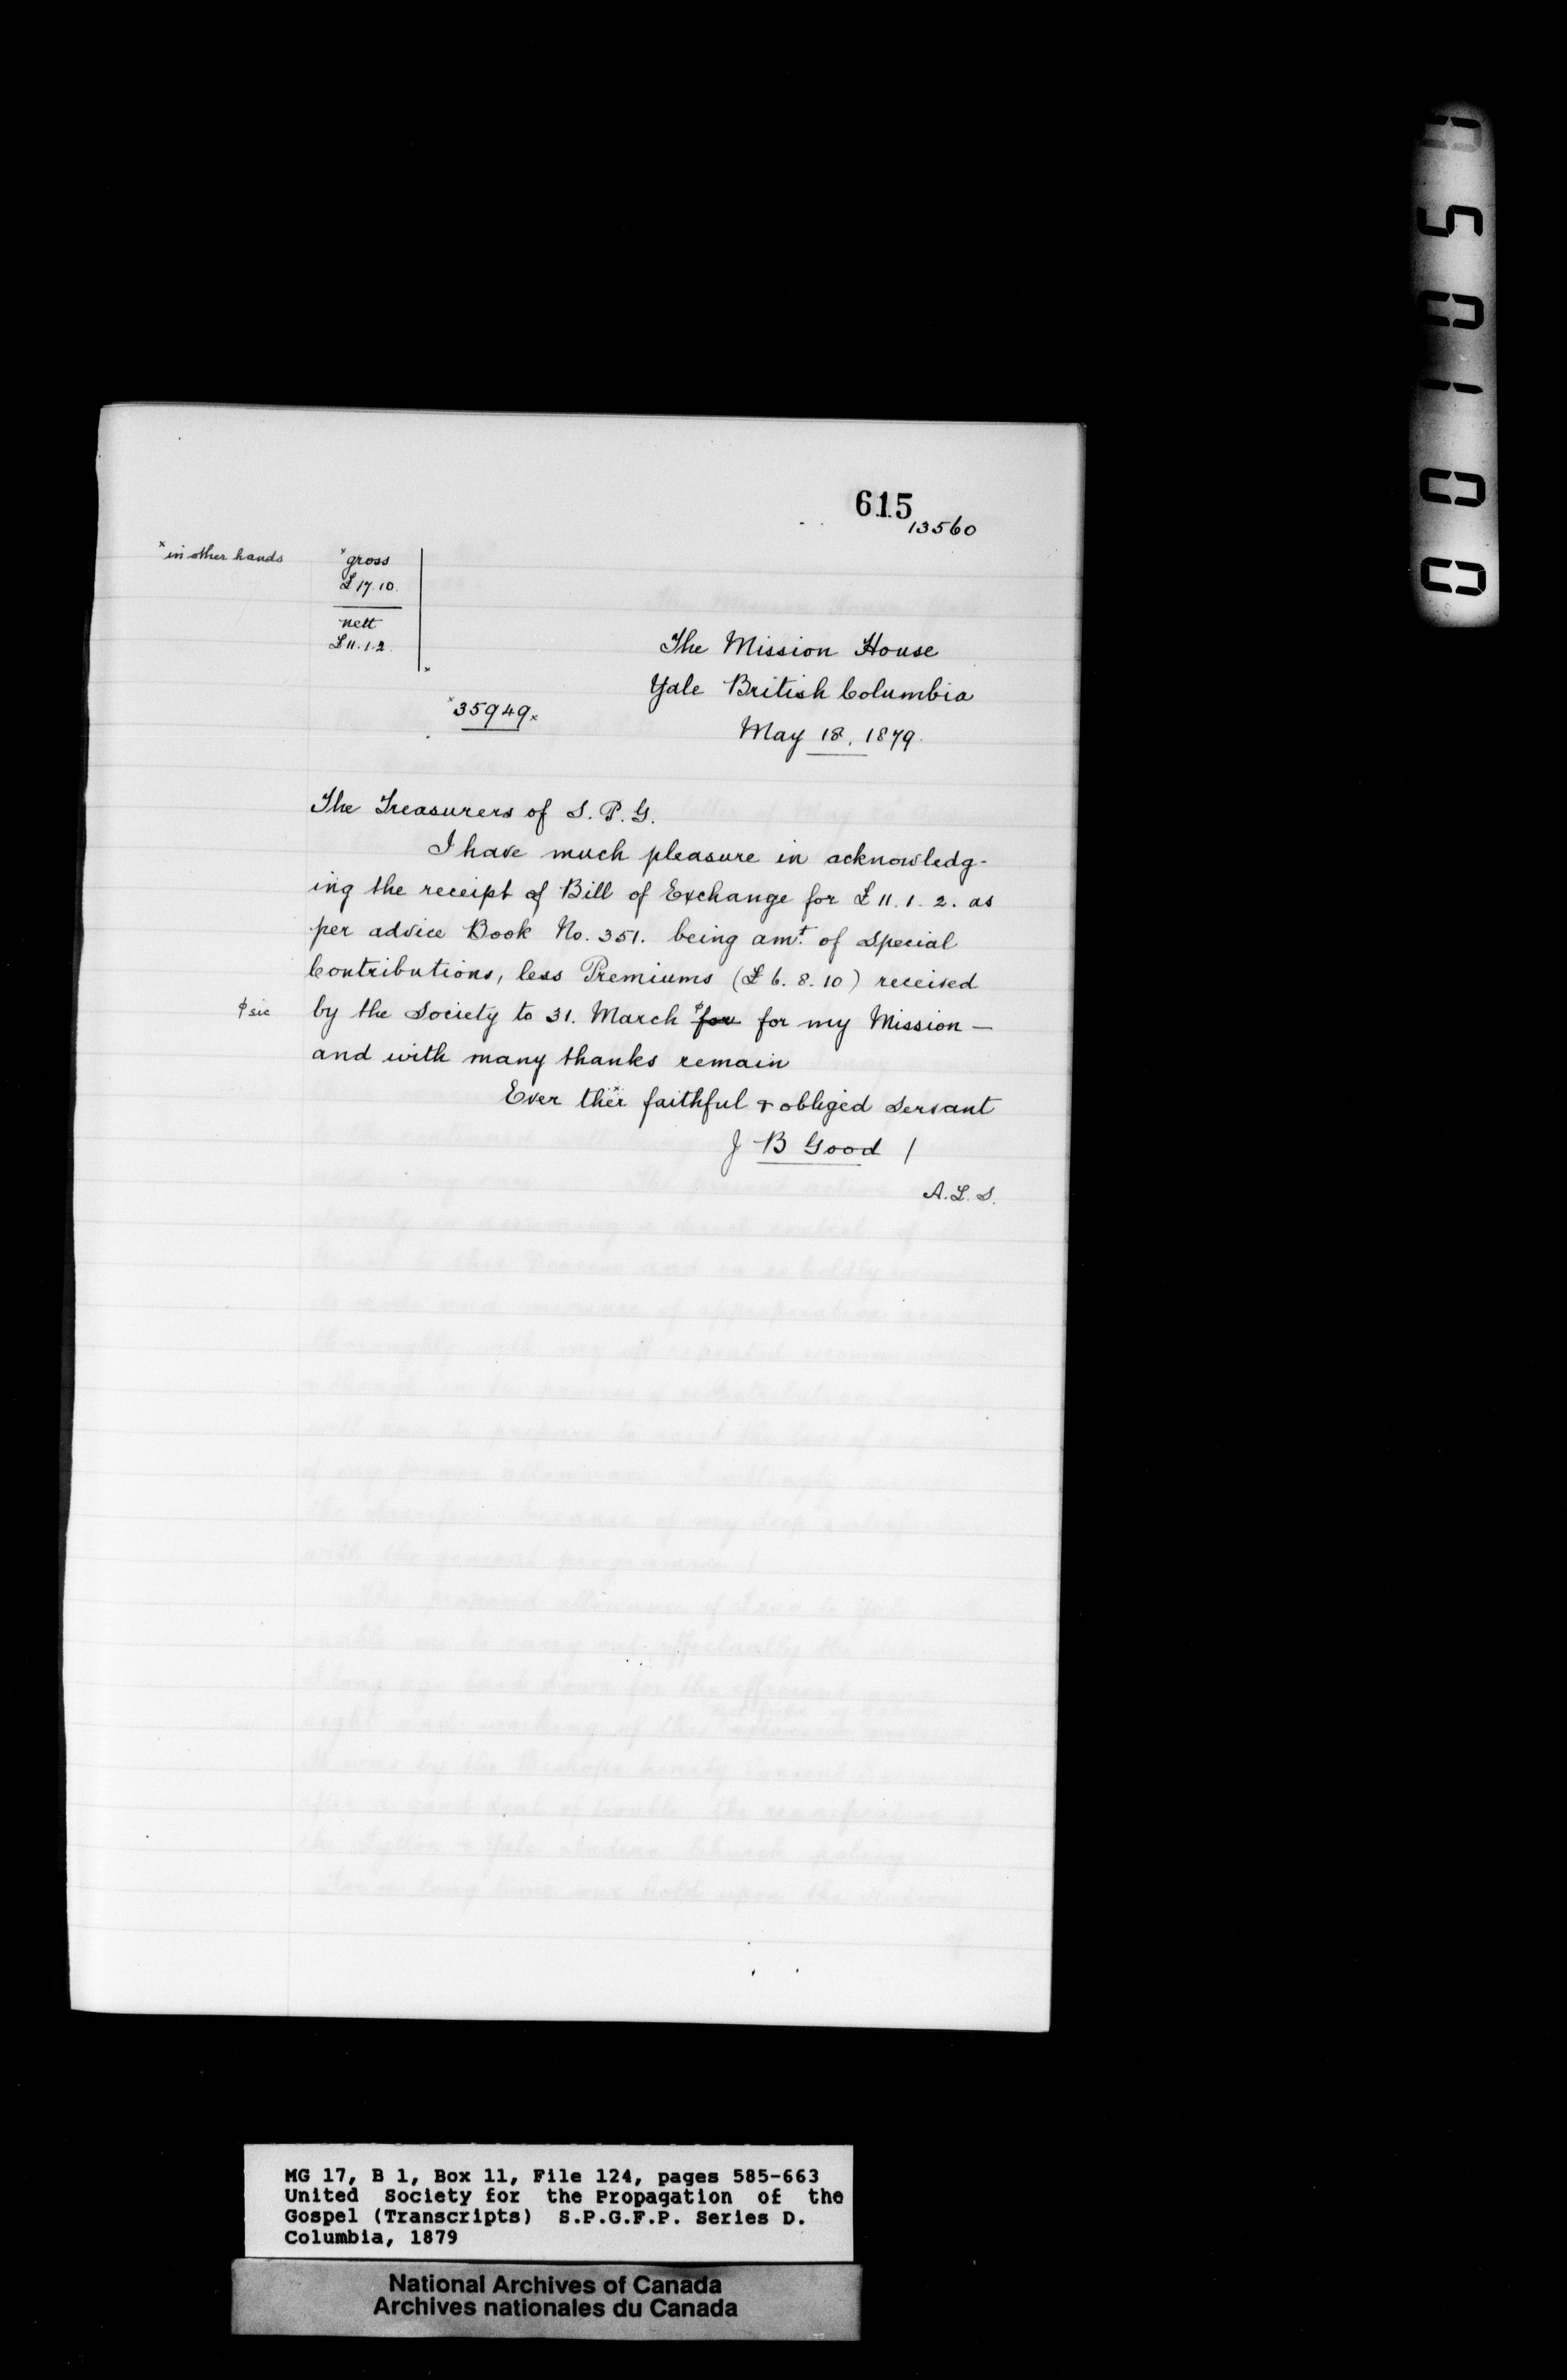 615
13560
x in other hands
x gross
£17.10.
nett
£11.1.2.
x
The Mission House
Yale British Columbia
x 35949 x
May 18, 1879.
The Treasurers of S. P. G.
I have much pleasure in acknowledg-
ing the receipt of Bill of Exchange for £11. 1. 2. as
per advice Book No. 351. being amt. of Special
Contributions, less Premiums (£6. 8. 10) received
ϕ sic
by the Society to 31. March ϕ for for my Mission —
and with many thanks remain
Ever their faithful & obliged Servant
J B Good /
A. L. S.
MG 17, B 1, Box 11, File 124, pages 585-663
United Society for the Propagation of the
Gospel (Transcripts) S.P.G.F.P. Series D.
Columbia, 1879
National Archives of Canada
Archives nationales du Canada
001050